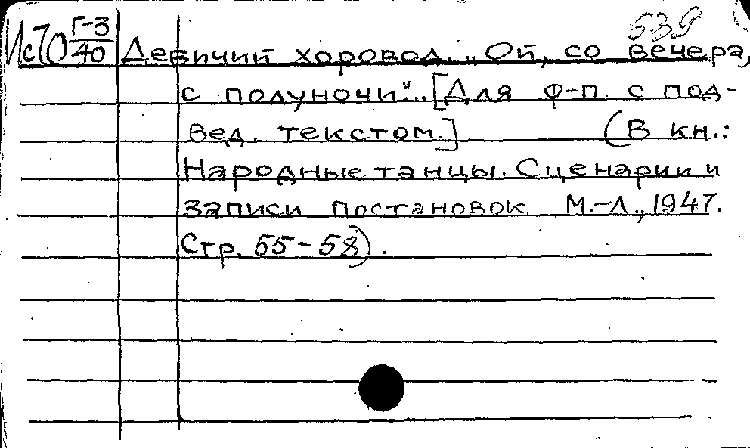 539
ИсП0 Г-3/40 Девичий хоровод. „Ой, со вечера,
с полуночи"... [Для ф-п. с под-
вед. текстом.] (В кн.:
Народные танцы. Сценарии и
записи постановок. М.-Л., 1947.
Стр. 55-58).